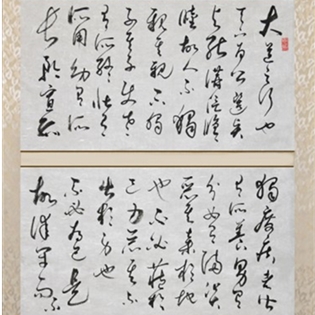 大道之行也
天下為公選賢
與能講信修
睦故人不獨
親其親不獨
子其子使老
有所終壯有
所用幼有所
長矜寡孤
獨廢疾者皆
有所養男有
分女有歸貨
惡其棄於地
也不必藏於
己力惡其不
出於身也
不必為己是
故謀閉而不